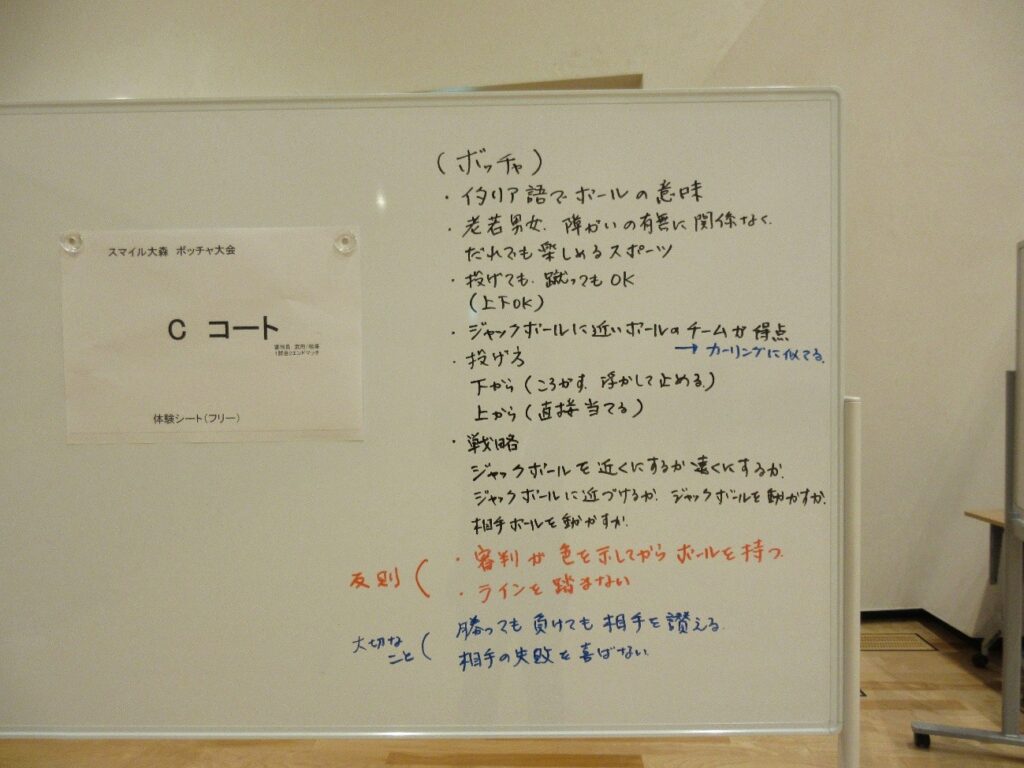 スマイル大森 ボッチャ大会
C コート
1試合2エンドマッチ
体験シート(フリー)
(ボッチャ)
・イタリア語でボールの意味
・老若男女、障がいの有無に関係なく
だれでも楽しめるスポーツ
・投げても、蹴ってもOK
(上下OK)
・ジャックボールに近いボールのチームが得点
→カーリングに似てる。
・投げ方
下から(ころがす、浮かして止める)
上から(直接当てる)
・戦略
ジャックボールを近くにするか遠くにするか、
ジャックボールに近づけるか、ジャックボールを動かすか、
相手ボールを動かすか、
反則(
・審判が色を示してからボールを持つ
・ラインを踏まない
大切な
こと(
勝っても負けても相手を讃える。
相手の失敗を喜ばない